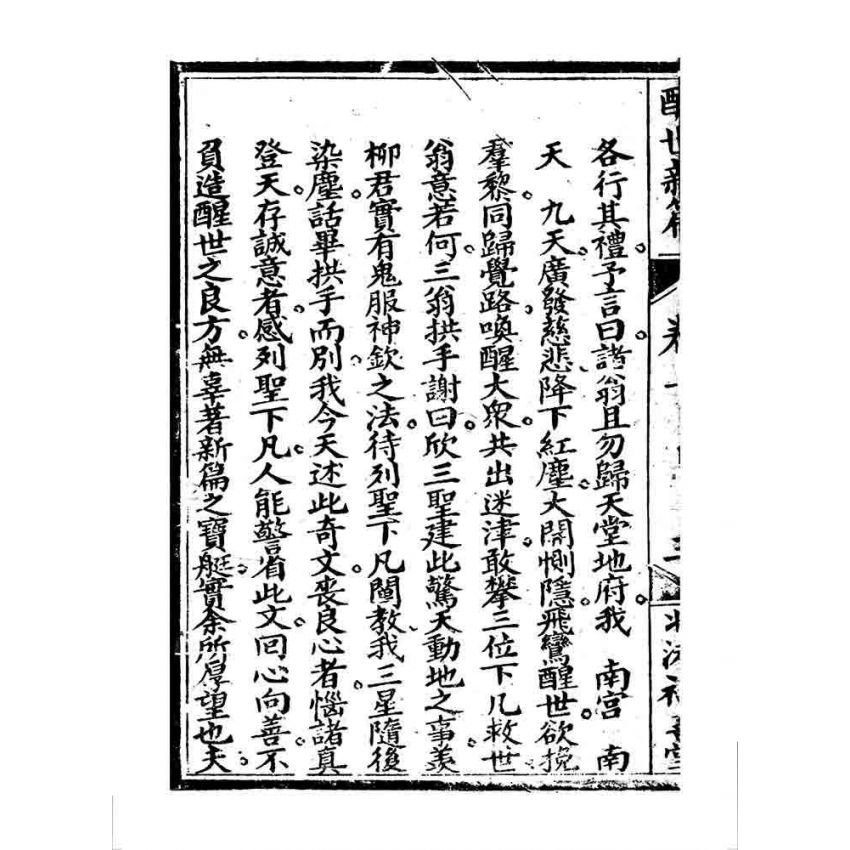 醒世新篇 卷一 三
各行其禮予言曰諸翁且勿歸天堂地府我 南宮 南
天 九天廣發慈悲降下紅塵大開惻隱飛鸞醒世欲挽
羣黎同歸覺路喚醒大衆共出迷津敢攀三位下凡救世
翁意若何三翁拱手謝曰欣三聖建此驚天動地之事羨
柳君實有鬼服神欽之法待列聖下凡闡教我三星隨後
染塵話畢拱手而別我今天述此奇文喪良心者惱諸真
登天存誠意者感列聖下凡人能警省此文回心向善不
負造醒世之良方無辜著新篇之寶艇實余所厚望也夫